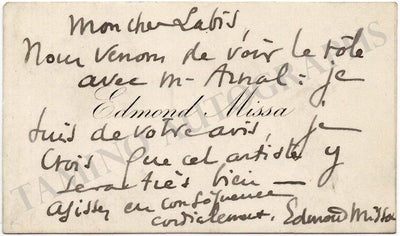 Mon cher Labis
Nous venons de voir le rôle
avec M. Arnal : je
Edmond Missa
suis de votre avis, je
crois que cet artiste y
sera très bien —
agissez en conséquence
cordialement. Edmond Missa
TAMINO AUTOGRAPHS